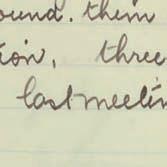 ound. them
ion, three
last meetin